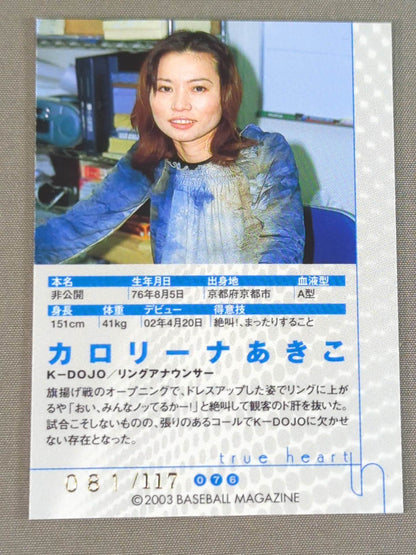 本名 生年月日 出身地 血液型
非公開 76年8月5日 京都府京都市 A型
身長 体重 デビュー 得意技
151cm 41kg 02年4月20日 絶叫!、まったりすること
カロリーナあきこ
K-DOJO/リングアナウンサー
旗揚げ戦のオープニングで、ドレスアップした姿でリングに上が
るや「おい、みんなノッてるかー!」と絶叫して観客のド肝を抜いた。
試合こそしないものの、張りのあるコールでK-DOJOに欠かせ
ない存在となった。
true heart
081/117 076
©2003 BASEBALL MAGAZINE